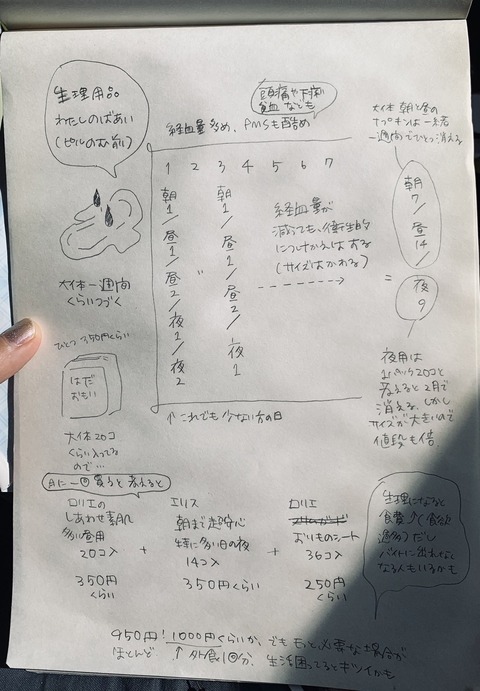 生理用品
わたしのばあい
(ピルのむ前)
頭痛や下痢
貧血なども
経血量多め、PMSも酷め
大体 朝と昼の
ナプキンは一緒
一週間でひとつ消える
1 2 3 4 5 6 7
朝
1
/
昼
1
/
昼
2
/
夜
1
/
夜
2
〃
朝
1
/
昼
1
/
昼
2
/
夜
1
経血量が
減っても、衛生的
につけかえはする
(サイズはかわる)
朝
7
/
昼
14
/
=
夜
9
大体一週間
くらいつづく
ひとつ350円くらい
はだ
おもい
大体20コ
くらい入ってる
ので…
↑これでも少ない方の日
夜用は
1パック20コと
考えると2月で
消える。しかし
サイズが大きいので
値段も倍。
月に一回買うと考えると
ロリエの
しあわせ素肌
多い昼用
20コ入
350円
くらい
+
エリス
朝まで超安心
特に多い日の夜
14コ入
350円くらい
+
ロリエ
おりものシート
36コ入
250円
くらい
生理になると
食費↗(食欲
過多)だし
バイトに出れなく
なる人もいるかも
950円!1000円くらいか、でももっと必要な場合が
ほとんど ↑外食1回分、生活困ってるとキツイかも